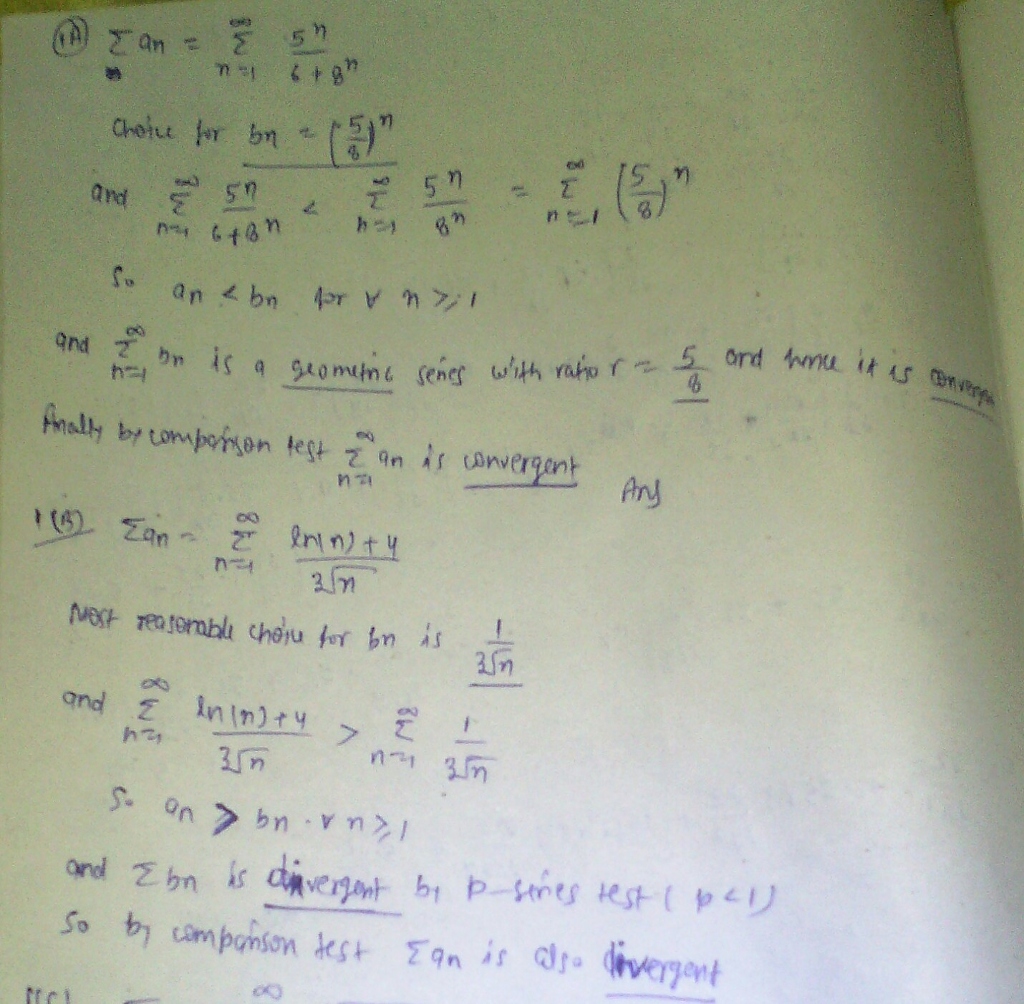 (1A) Σ an = ∞Σn=1 5^n / 6+8^n
Choice for bn = (5/8)^n
and ∞Σn=1 5^n / 6+8^n < ∞Σn=1 5^n / 8^n = ∞Σn=1 (5/8)^n
So an < bn for ∀ n ≥ 1
and ∞Σn=1 bn is a geometric series with ratio r = 5/8 and hence it is
finally by comparison test ∞Σn=1 an is convergent Ans
1(B) Σan = ∞Σn=1 ln(n)+4 / 3√n
Most reasonable choice for bn is 1 / 3√n
and ∞Σn=1 ln(n)+4 / 3√n > ∞Σn=1 1 / 3√n
So an > bn . ∀ n ≥ 1
and Σbn is divergent by p-series test ( p<1)
So by comparison test Σan is also divergent
∞